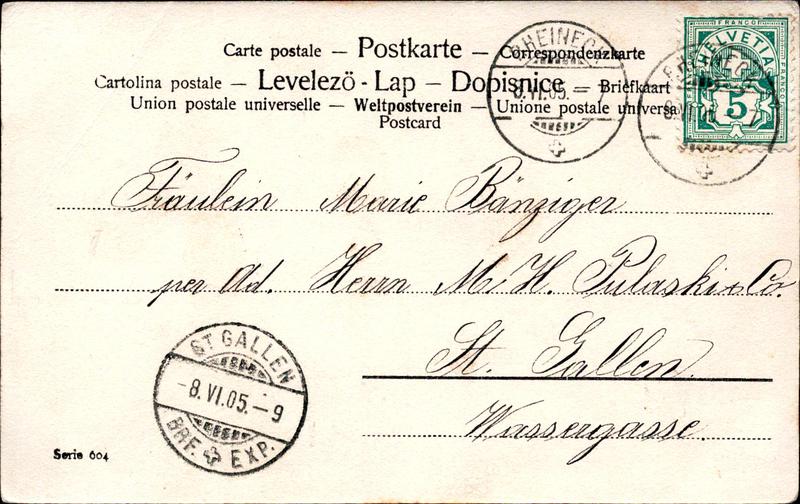 Carte postale – Postkarte – Correspondenzkarte
Cartolina postale – Levelező - Lap – Dopisnice – Briefkaart
Union postale universelle – Weltpostverein – Unione postale universa
Postcard
FRANCO
HELVETIA
5
RHEINECK
8.VI.05.
Fräulein Marie Bänziger
per Ad. Herrn M. H. Pulaski & Co.
St. Gallen.
Wassergasse.
ST. GALLEN
-8.VI.05.-9
BRF. EXP.
Serie 604